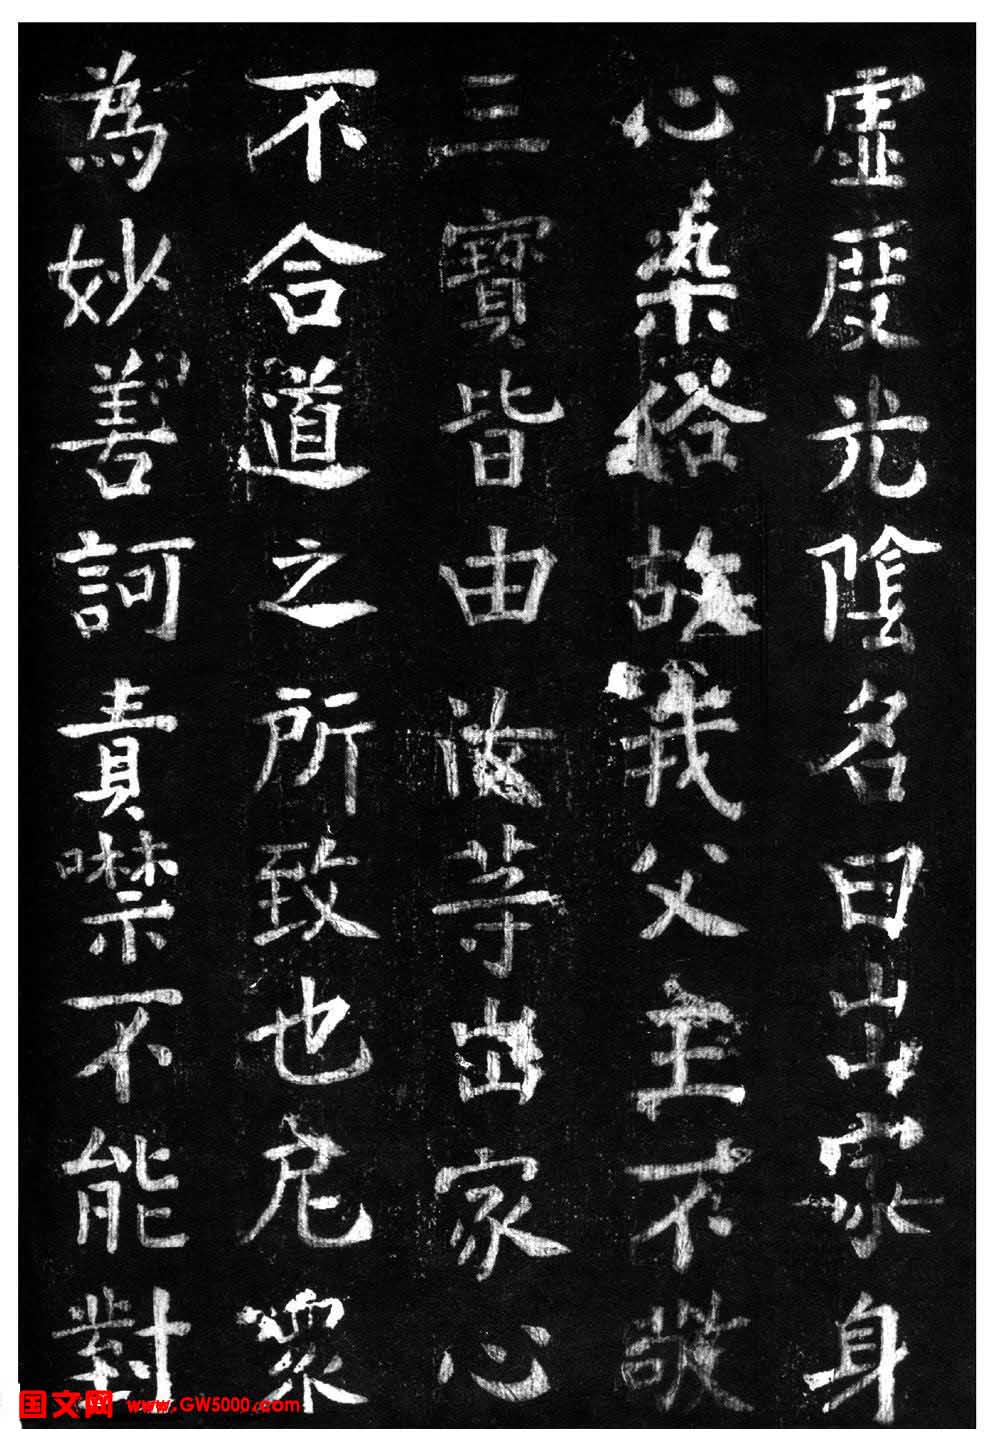 虛度光陰名曰出家身
心染俗故我父主不敬
三寶皆由汝等出家心
不合道之所致也尼眾
為妙善訶責噤不能對
国文网 www.GW5000.com